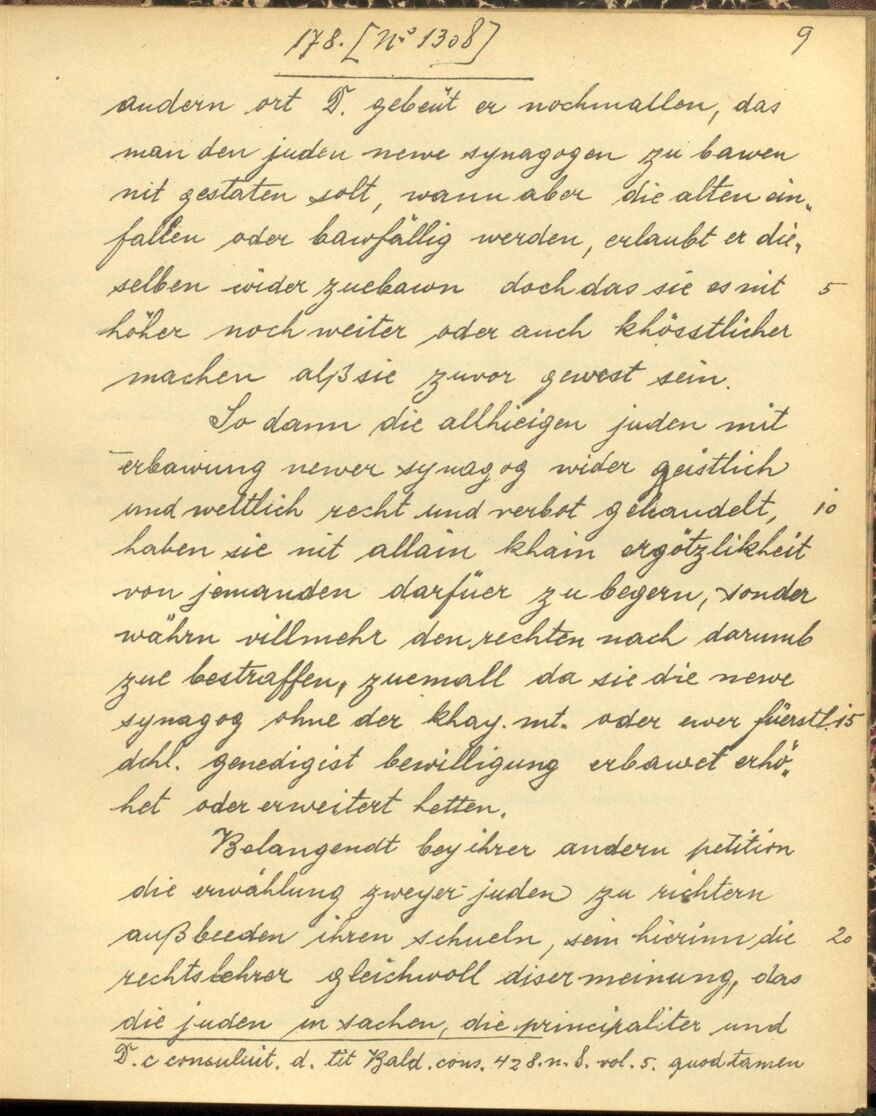 178. [No 1308]
9
andern ort D. gebeüt er nochmallen, das
man den juden newe synagogen zu bawen
nit gestaten solt, wann aber die alten ein„
fallen oder bawfällig werden, erlaubt er die„
selben wider zuebawn doch das sie es nit 5
höher noch weiter oder auch khösstlicher
machen alß sie zuvor gewest sein.
So dann die allhieigen juden mit
erbawung newer synagog wider geistlich
und weltlich recht und verbot gehandelt, 10
haben sie nit allain khain ergötzlikheit
von jemanden darfüer zu begern, sonder
währn villmehr den rechten nach darumb
zue bestraffen, zuemall da sie die newe
synagog ohne der khay. mt. oder ewer füerstl. 15
dchl. genedigist bewilligung erbawet erhö„
het oder erweitert hetten.
Belangendt bey ihrer andern petition
die erwählung zweyer juden zu richtern
auß beeden ihren schueln, sein hierinn die 20
rechtslehrer gleichwoll diser meinung, das
die juden in sachen, die principaliter und
D. c consuluit. d. tit Bald. cons. 428. n. 8. vol. 5. quod tamen